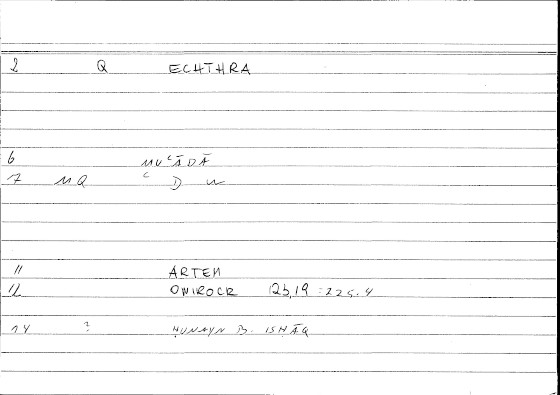 2 Q ECHTHRA
6 MUʿĀDĀ
7 MQ ʿ D W
11 ARTEM
12 ONIROCR 123,19 = 225.4
14 ? ḤUNAYN B. ISḤĀQ